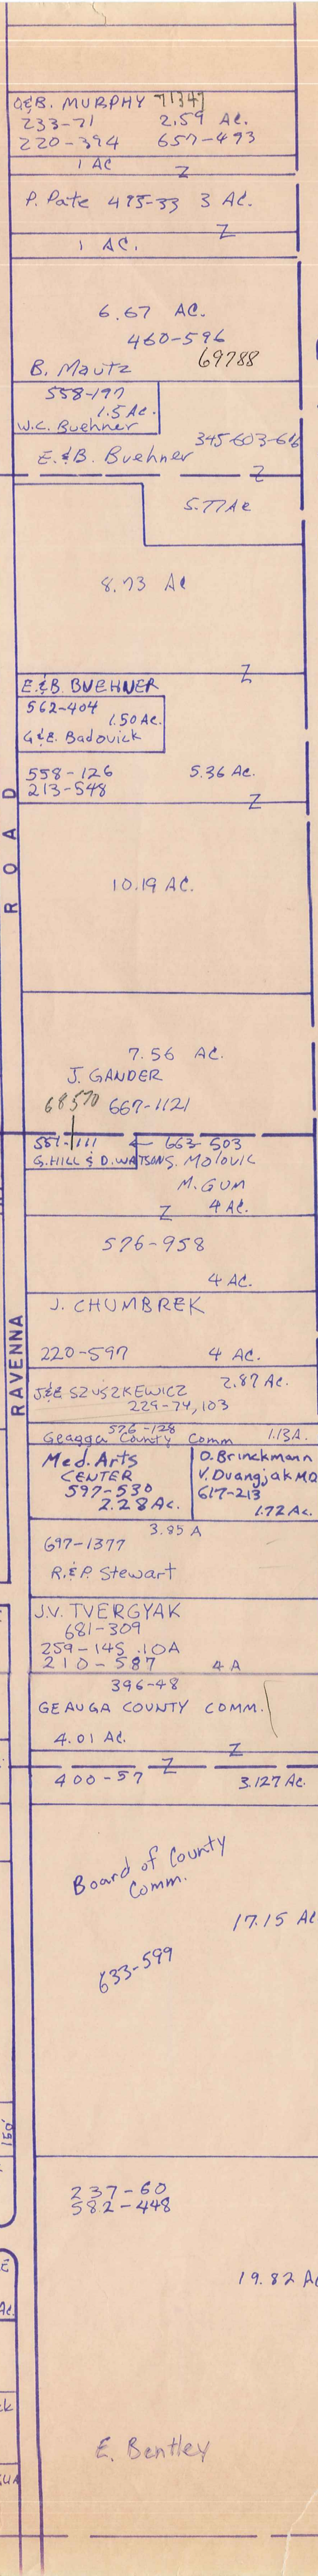 O&B. MURPHY 71347
233-71 2.59 AC.
220-394 657-493
1 AC
Z
P. Pate 475-33 3 AC.
Z
1 AC.
6.67 AC.
460-596
69788
B. Mautz
558-197
1.5 AC.
W.C. Buehner
345-603-616
E.&B. Buehner
Z
5.77 AC
8.73 AC
Z
E.&B. BUEHNER
562-404
1.50 AC.
G&E. Badovick
558-126 5.36 AC.
213-548
Z
ROAD
10.19 AC.
7.56 AC.
J. GANDER
68570 667-1121
551-111 ← 663-503
G. HILL & D. WATSON S. Molovic
M. GUM
Z 4 AC.
576-958
4 AC.
J. CHUMBREK
220-597 4 AC.
RAVENNA
2.87 AC.
J&E SZUSZKEWICZ
229-74,103
576-128
Geagga County Comm 1.13A.
Med. Arts
CENTER
597-530
2.28 AC.
O. Brinckmann
V. Duangjak MD
617-213
1.72 AC.
3.85 A
697-1377
R.&P. Stewart
J.V. TVERGYAK
681-309
259-145 .10A
210-587 4 A
396-48
GEAUGA COUNTY COMM.
4.01 AC.
Z
Z
400-57 3.127 AC.
Board of County
Comm.
17.15 AC
633-599
051
237-60
582-448
19.82 AC
E
AC.
ck
GUA
E. Bentley